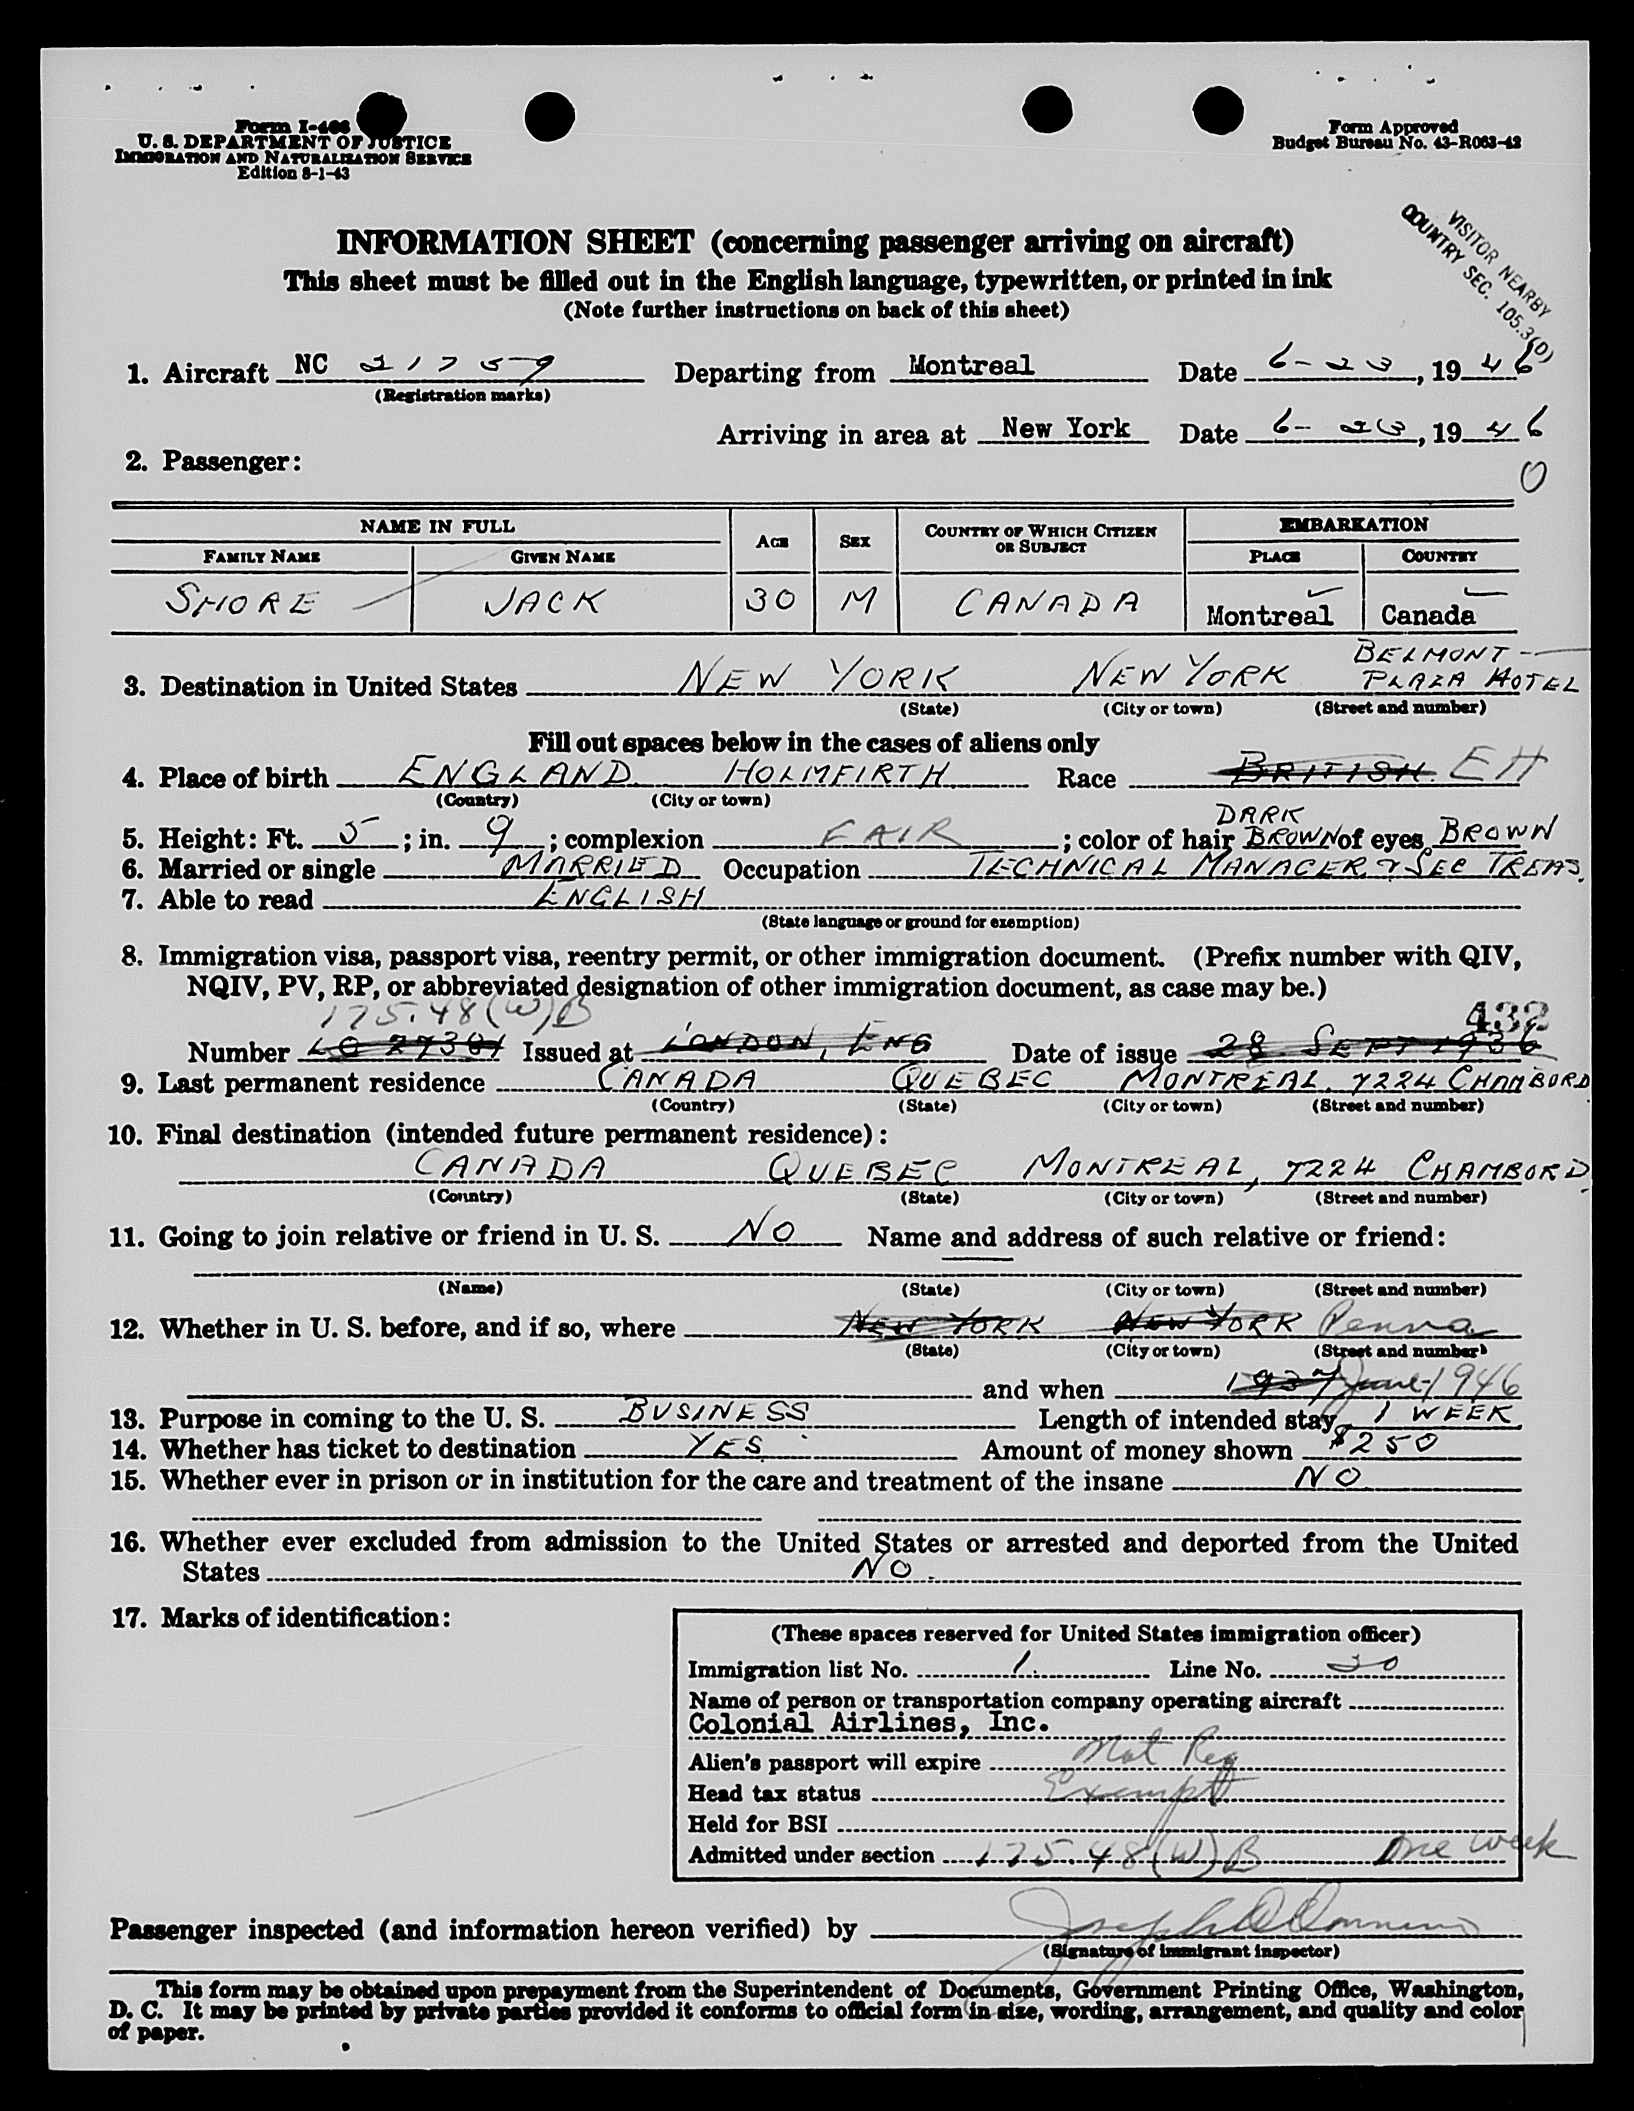 Form I-466
U. S. DEPARTMENT OF JUSTICE
IMMIGRATION AND NATURALIZATION SERVICE
Edition 8-1-43
Form Approved
Budget Bureau No. 43-R063-42
VISITOR NEARBY
COUNTRY SEC. 105.3(D)
INFORMATION SHEET (concerning passenger arriving on aircraft)
This sheet must be filled out in the English language, typewritten, or printed in ink
(Note further instructions on back of this sheet)
1. Aircraft NC 21759 Departing from Montreal Date 6-23, 1946
(Registration marks)
Arriving in area at New York Date 6-23, 1946
2. Passenger:
0
NAME IN FULL AGE SEX COUNTRY OF WHICH CITIZEN OR SUBJECT EMBARKATION
FAMILY NAME GIVEN NAME PLACE COUNTRY
SHORE JACK 30 M CANADA Montreal Canada
3. Destination in United States NEW YORK NEW YORK BELMONT PLAZA HOTEL
(State) (City or town) (Street and number)
Fill out spaces below in the cases of aliens only
4. Place of birth ENGLAND HOLMFIRTH Race BRITISH EH
(Country) (City or town)
5. Height: Ft. 5; in. 9; complexion FAIR; color of hair DARK BROWN of eyes BROWN
6. Married or single MARRIED Occupation TECHNICAL MANAGER & SEC TREAS.
7. Able to read ENGLISH
(State language or ground for exemption)
8. Immigration visa, passport visa, reentry permit, or other immigration document. (Prefix number with QIV,
NQIV, PV, RP, or abbreviated designation of other immigration document, as case may be.)
175.48(W)B 432
Number Issued at LONDON, ENG Date of issue 28 SEPT 1936
9. Last permanent residence CANADA QUEBEC MONTREAL. 7224 CHAMBORD
(Country) (State) (City or town) (Street and number)
10. Final destination (intended future permanent residence):
CANADA QUEBEC MONTREAL, 7224 CHAMBORD
(Country) (State) (City or town) (Street and number)
11. Going to join relative or friend in U. S. NO Name and address of such relative or friend:
(Name) (State) (City or town) (Street and number)
12. Whether in U. S. before, and if so, where NEW YORK NEW YORK Penna
(State) (City or town) (Street and number)
and when 1937 June 1946
13. Purpose in coming to the U. S. BUSINESS Length of intended stay 1 WEEK
14. Whether has ticket to destination YES Amount of money shown $250
15. Whether ever in prison or in institution for the care and treatment of the insane NO
16. Whether ever excluded from admission to the United States or arrested and deported from the United
States NO.
17. Marks of identification:
(These spaces reserved for United States immigration officer)
Immigration list No. 1 Line No. 30
Name of person or transportation company operating aircraft
Colonial Airlines, Inc.
Alien's passport will expire Not Req
Head tax status Exempt
Held for BSI
Admitted under section 175.48(W)B One week
Passenger inspected (and information hereon verified) by Joseph
(Signature of immigrant inspector)
This form may be obtained upon prepayment from the Superintendent of Documents, Government Printing Office, Washington,
D. C. It may be printed by private parties provided it conforms to official form in size, wording, arrangement, and quality and color
of paper.